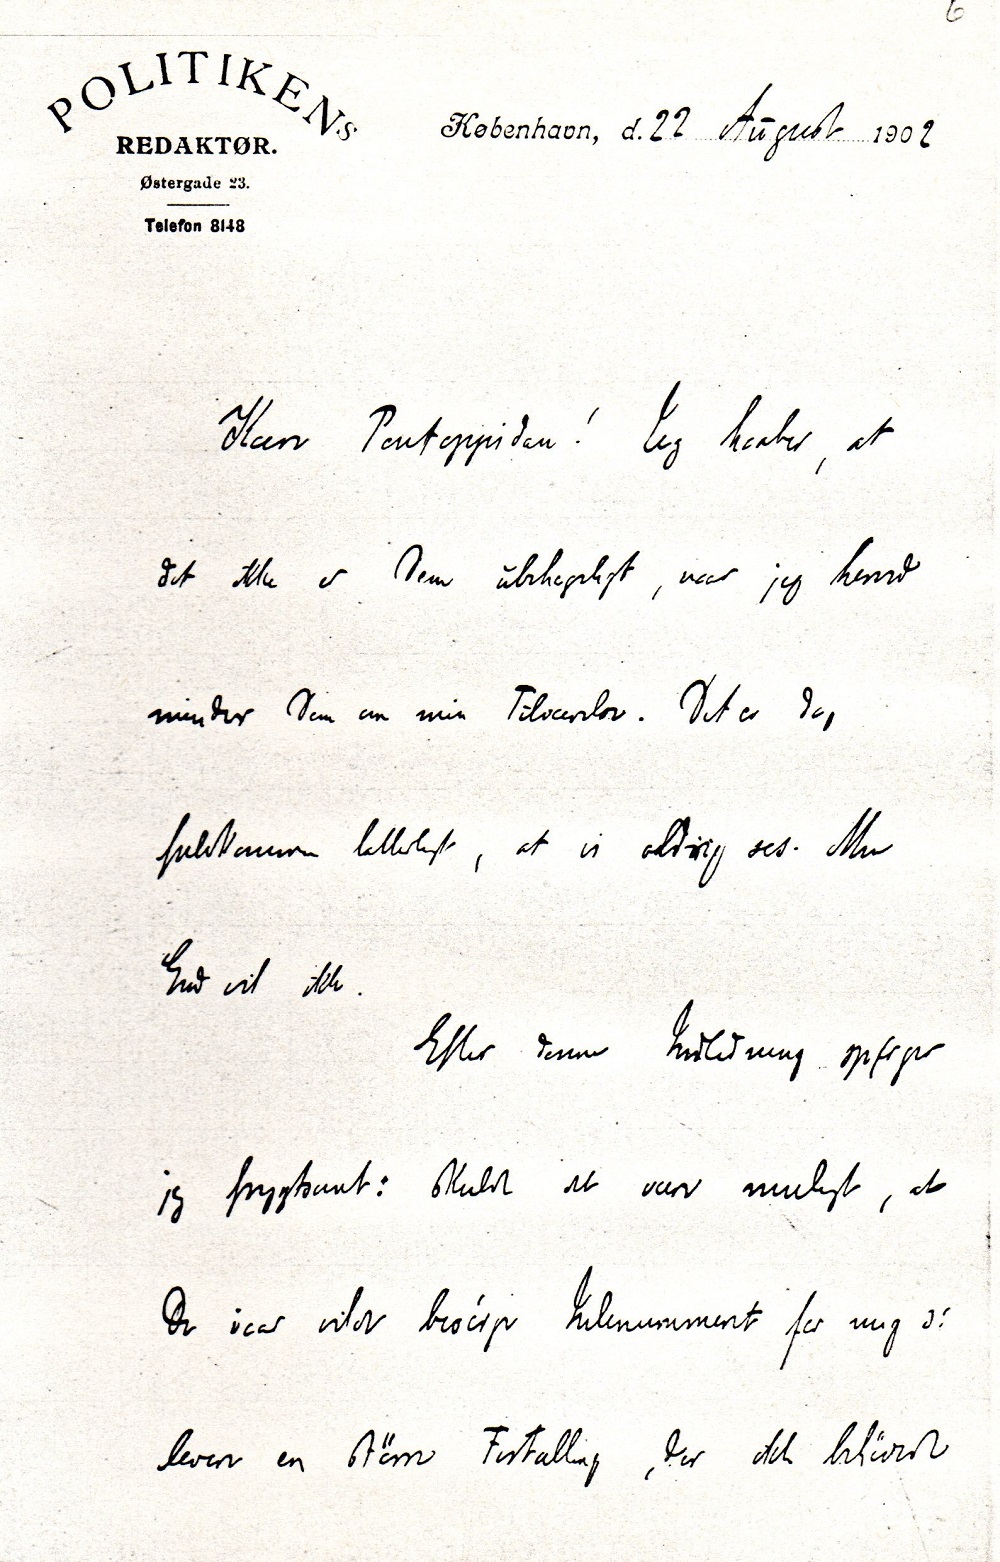 6
POLITIKENS
REDAKTØR.
Østergade 23.
Telefon 8148
København, d. 22 August 1902
Kære Pontoppidan! Jeg haaber, at
det ikke er Dem ubehageligt, naar jeg herved
minder Dem om min Tilværelse. Det er dog
fuldkommen latterligt, at vi aldrig ses. Men
Gud vil ikke.
Efter denne Indledning spørger
jeg frygtsomt: Skulde det være muligt, at
De i Aar vilde besörge Julenummeret for mig ɔ:
levere en større Fortælling, der ikke behövede